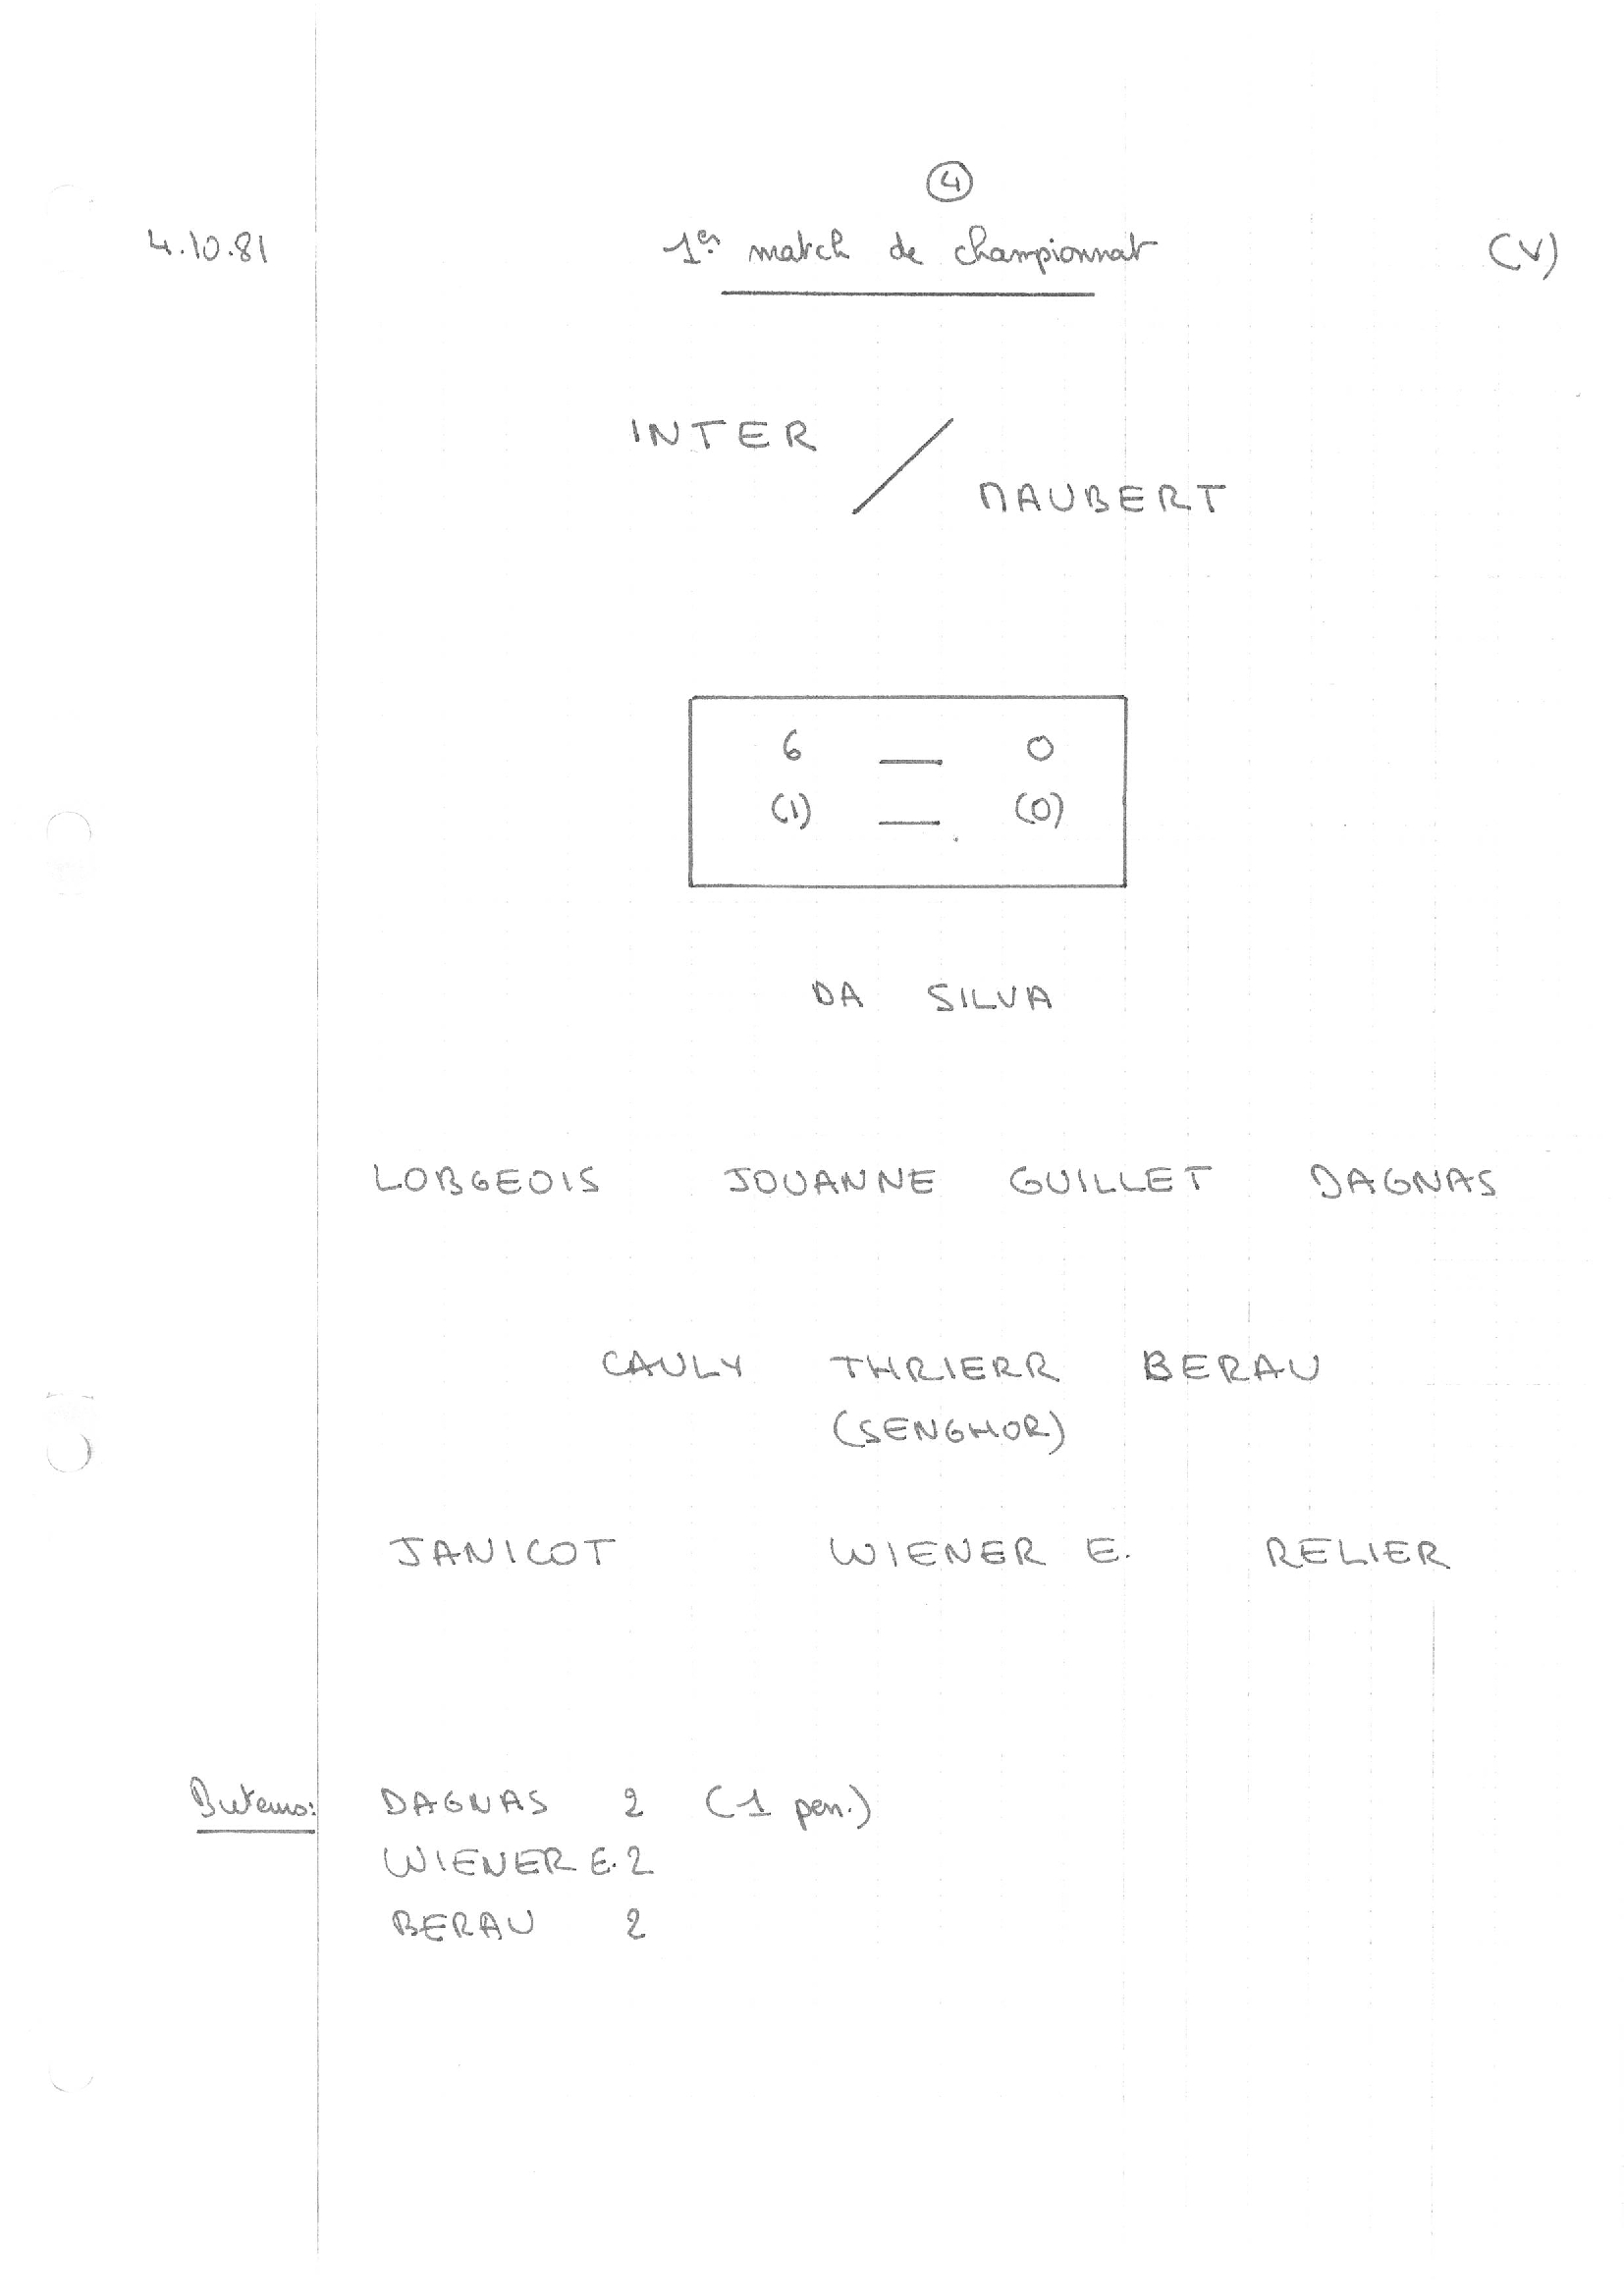 ④
4.10.81 1er match de championnat (V)
INTER /
MAUBERT
6 — 0
(1) — (0)
DA SILVA
LOBGEOIS JOUANNE GUILLET DAGNAS
CAULY THRIERR BERAU
(SENGHOR)
JANICOT WIENER E. RELIER
Buteurs: DAGNAS 2 (1 pen.)
WIENER E. 2
BERAU 2